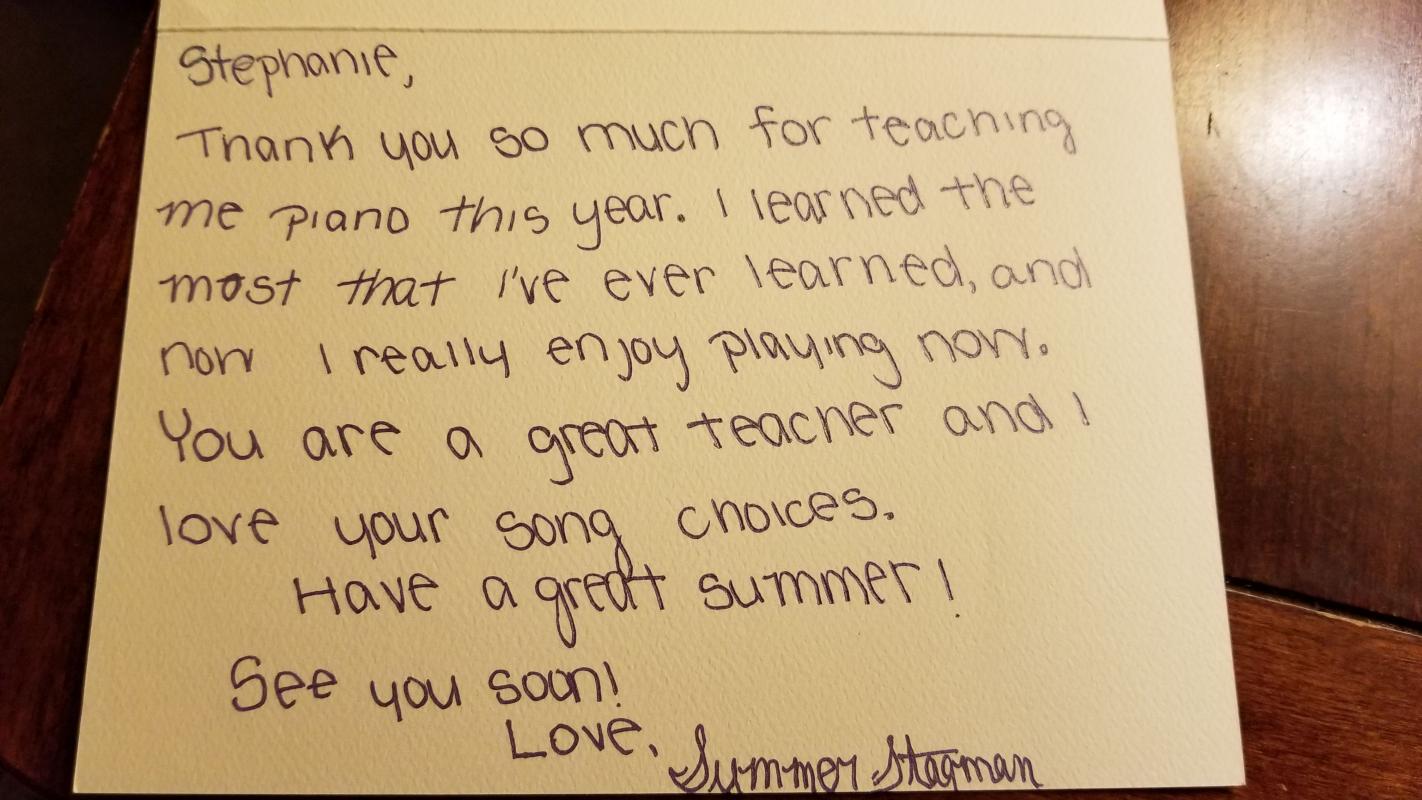 Stephanie,
Thank you so much for teaching
me piano this year. I learned the
most that I've ever learned, and
now I really enjoy playing now.
You are a great teacher and I
love your song choices.
Have a great summer!
See you soon!
Love,
Summer Stagman